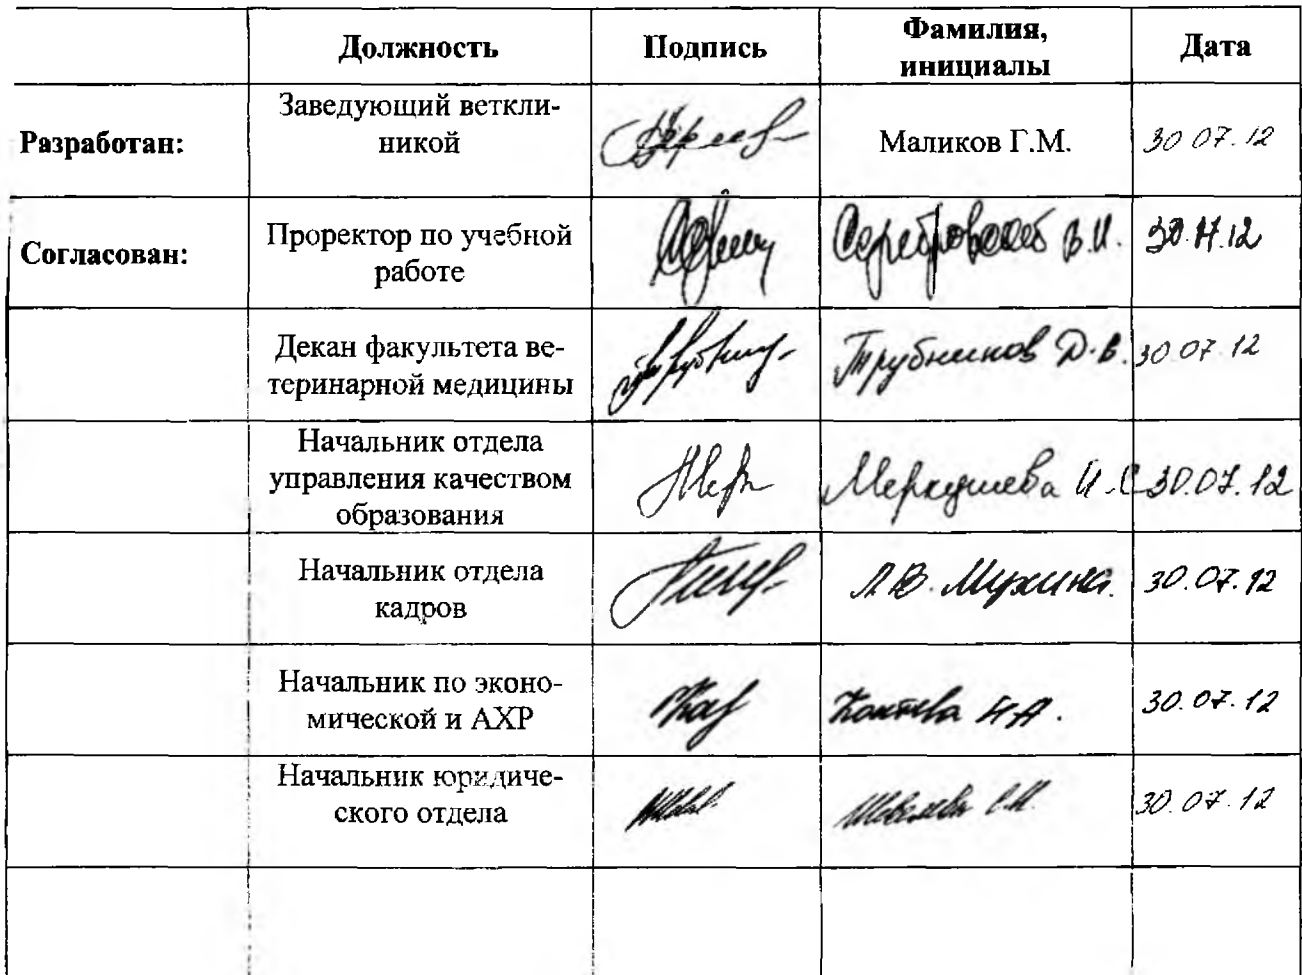 Должность Подпись Фамилия, Дата
инициалы
Разработан: Заведующий веткли-
никой Маликов Г.М. 30 07.12
Согласован: Проректор по учебной
работе Серебровский В.И. 30.07.12
Декан факультета ве-
теринарной медицины Трубников Д.В. 30 07 12
Начальник отдела
управления качеством
образования Меркушева И.С 30.07.12
Начальник отдела
кадров Л.В. Мухина. 30.07.12
Начальник по эконо-
мической и АХР 30.07.12
Начальник юридиче-
ского отдела 30.07.12